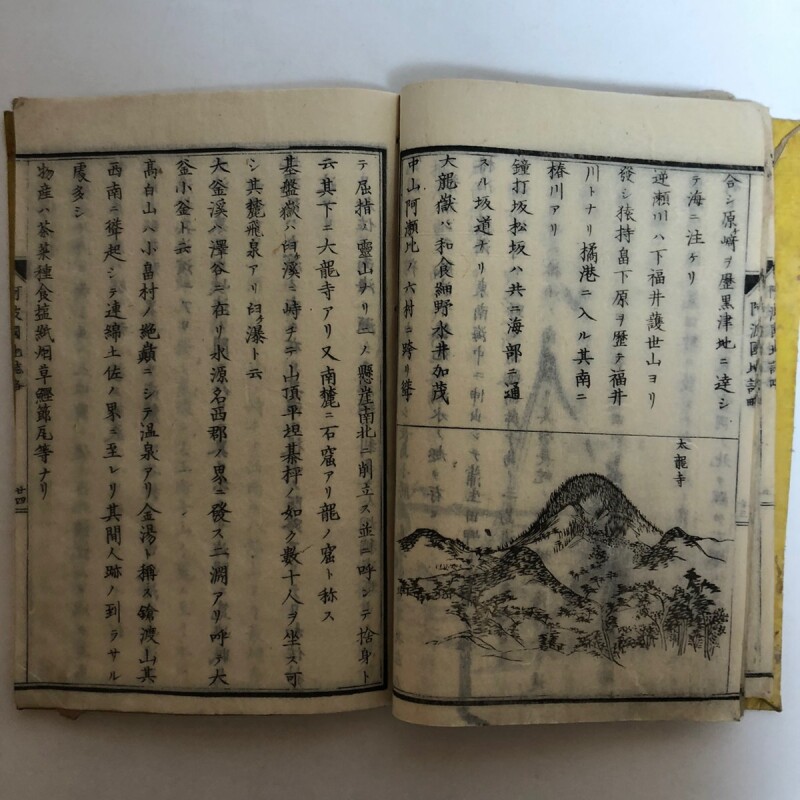 合シ原ヶ﨑ヲ歴黒津地ニ達シ
テ海ニ注ケリ
逆瀬川ハ下福井護世山ヨリ
發シ椿持畠下原ヲ歴テ福井
川トナリ橘港ニ入ル其南ニ
椿川アリ
鐘打坂松坂ハ共ニ海部ニ通
スル坂道ナリ
大龍嶽ハ和食細野水井加茂
中山阿瀬比ノ六村ニ跨リ聳
太龍寺
テ屈指ノ靈山ナリ
懸崖南北ニ削立ス並ニ呼ンテ捨身ト
云其下ニ大龍寺アリ又南麓ニ石窟アリ龍ノ窟ト称ス
碁盤嶽ハ臼ヶ溪ニ峙チテ山頂平坦碁枰ノ如ク數十人ヲ坐ス可
シ其麓飛泉アリ臼ヶ瀑ト云
大釜溪ハ澤谷ニ在リ水源名西郡ノ界ニ發ス二淵アリ呼テ大
釜小釜ト云
高白山ハ小畠村ノ絶巓ニシテ温泉アリ金湯ト稱ス鎗波山其
西南ニ聳起シテ連綿土佐ノ界ニ至レリ其間人跡ノ到ラサル
處多シ
物産ハ茶菜種食鹽紙烟草鰹節瓦等ナリ
阿波國地誌畧
廿四